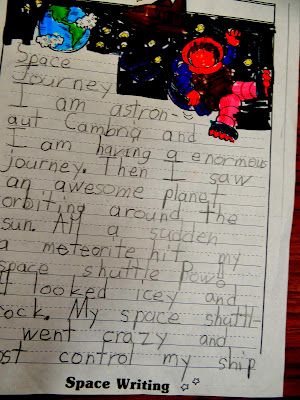 Space
Journey
I am astron-
aut Cambria and
I am having a enormous
journey. Then I saw
an awesome planet
orbiting around the
sun. All a sudden
a meteorite hit my
space shuttle Pow
looked icey and
rock. My space shuttl-
went crazy and
ost control my ship
Space Writing